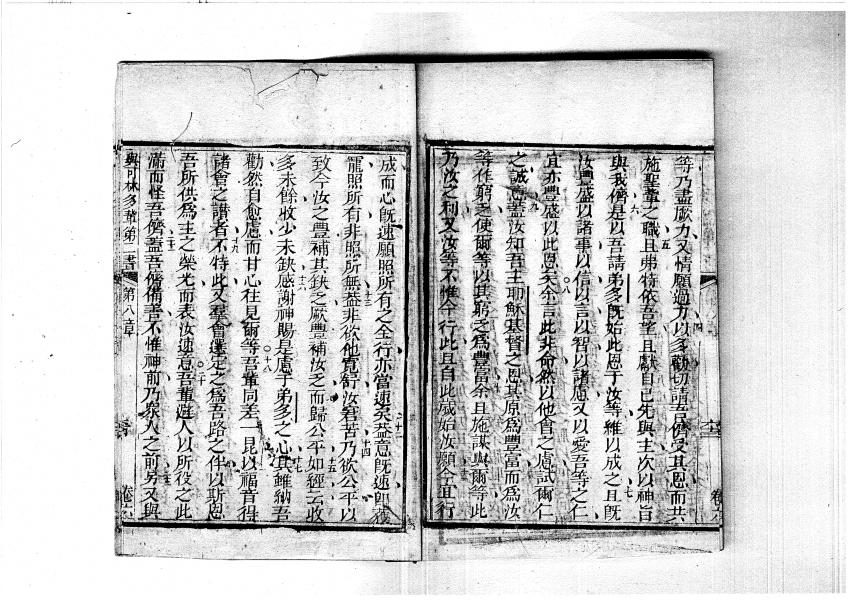 等乃盡厥力又情願過力以多勸切請吾儕受其恩而共
施聖輩之職且弗特依吾望且獻自己先與主次以神旨
與我儕是以吾請弟多既始此恩于汝等維以成之且既
汝豐盛以諸事以信以言以智以諸慮又以愛吾等之仁
宜亦豐盛以此恩矣余言此非命然以他會之慮試爾仁
之誠 蓋汝知吾主耶穌基督之恩其原為豐富而為汝
等作窮乏使爾等以其窮乏為豐富余且施謀與爾等此
乃汝之利又汝等不惟令行此且自此歲始汝願今宜行
成而心既速願照所有之全行亦當速矣蓋意既速即獲
寵照所有非照所無蓋非欲他寬舒汝窘苦乃欲公平以
致今汝之豐補其缺乏厥豐補汝乏而歸公平如經云收
多未餘收少未缺感謝神賜是慮于弟多之心其雖納吾
勸然自愈慮而甘心往見爾等吾輩同差一昆以福音得
諸會之讚者不特此又羣會選定之為吾路之伴以斯恩
吾所供為主之榮光而表汝速意吾輩避人以所役之此
滿而怪吾儕蓋吾儕備善不惟神前乃眾人之前另又與
與可林多輩第二書 第八章
卷六